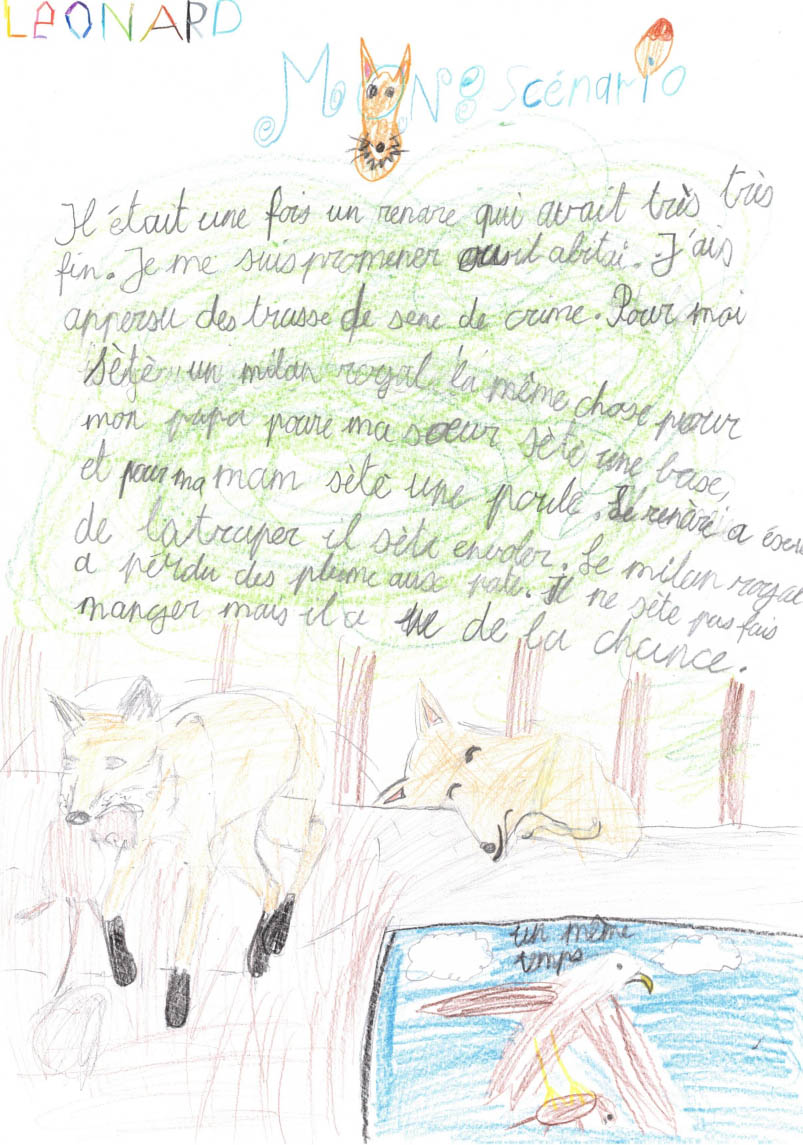 LEONARD
Mon scénario
Il était une fois un renare qui avait très très
fin. Je me suis promener ousit abitai. J'ais
appersu des trasse de sene de crime. Pour moi
sètè un milan royal la même chose pour
mon papa poure ma soeur sètè une base,
et pour ma mam sète une poule. Le renare a éseié
de l'atraper il sète envoler. Le milan royal
a pérdu des plume aux pate. Il ne sète pas fais
manger mais il a ue de la chance.
un même
temps